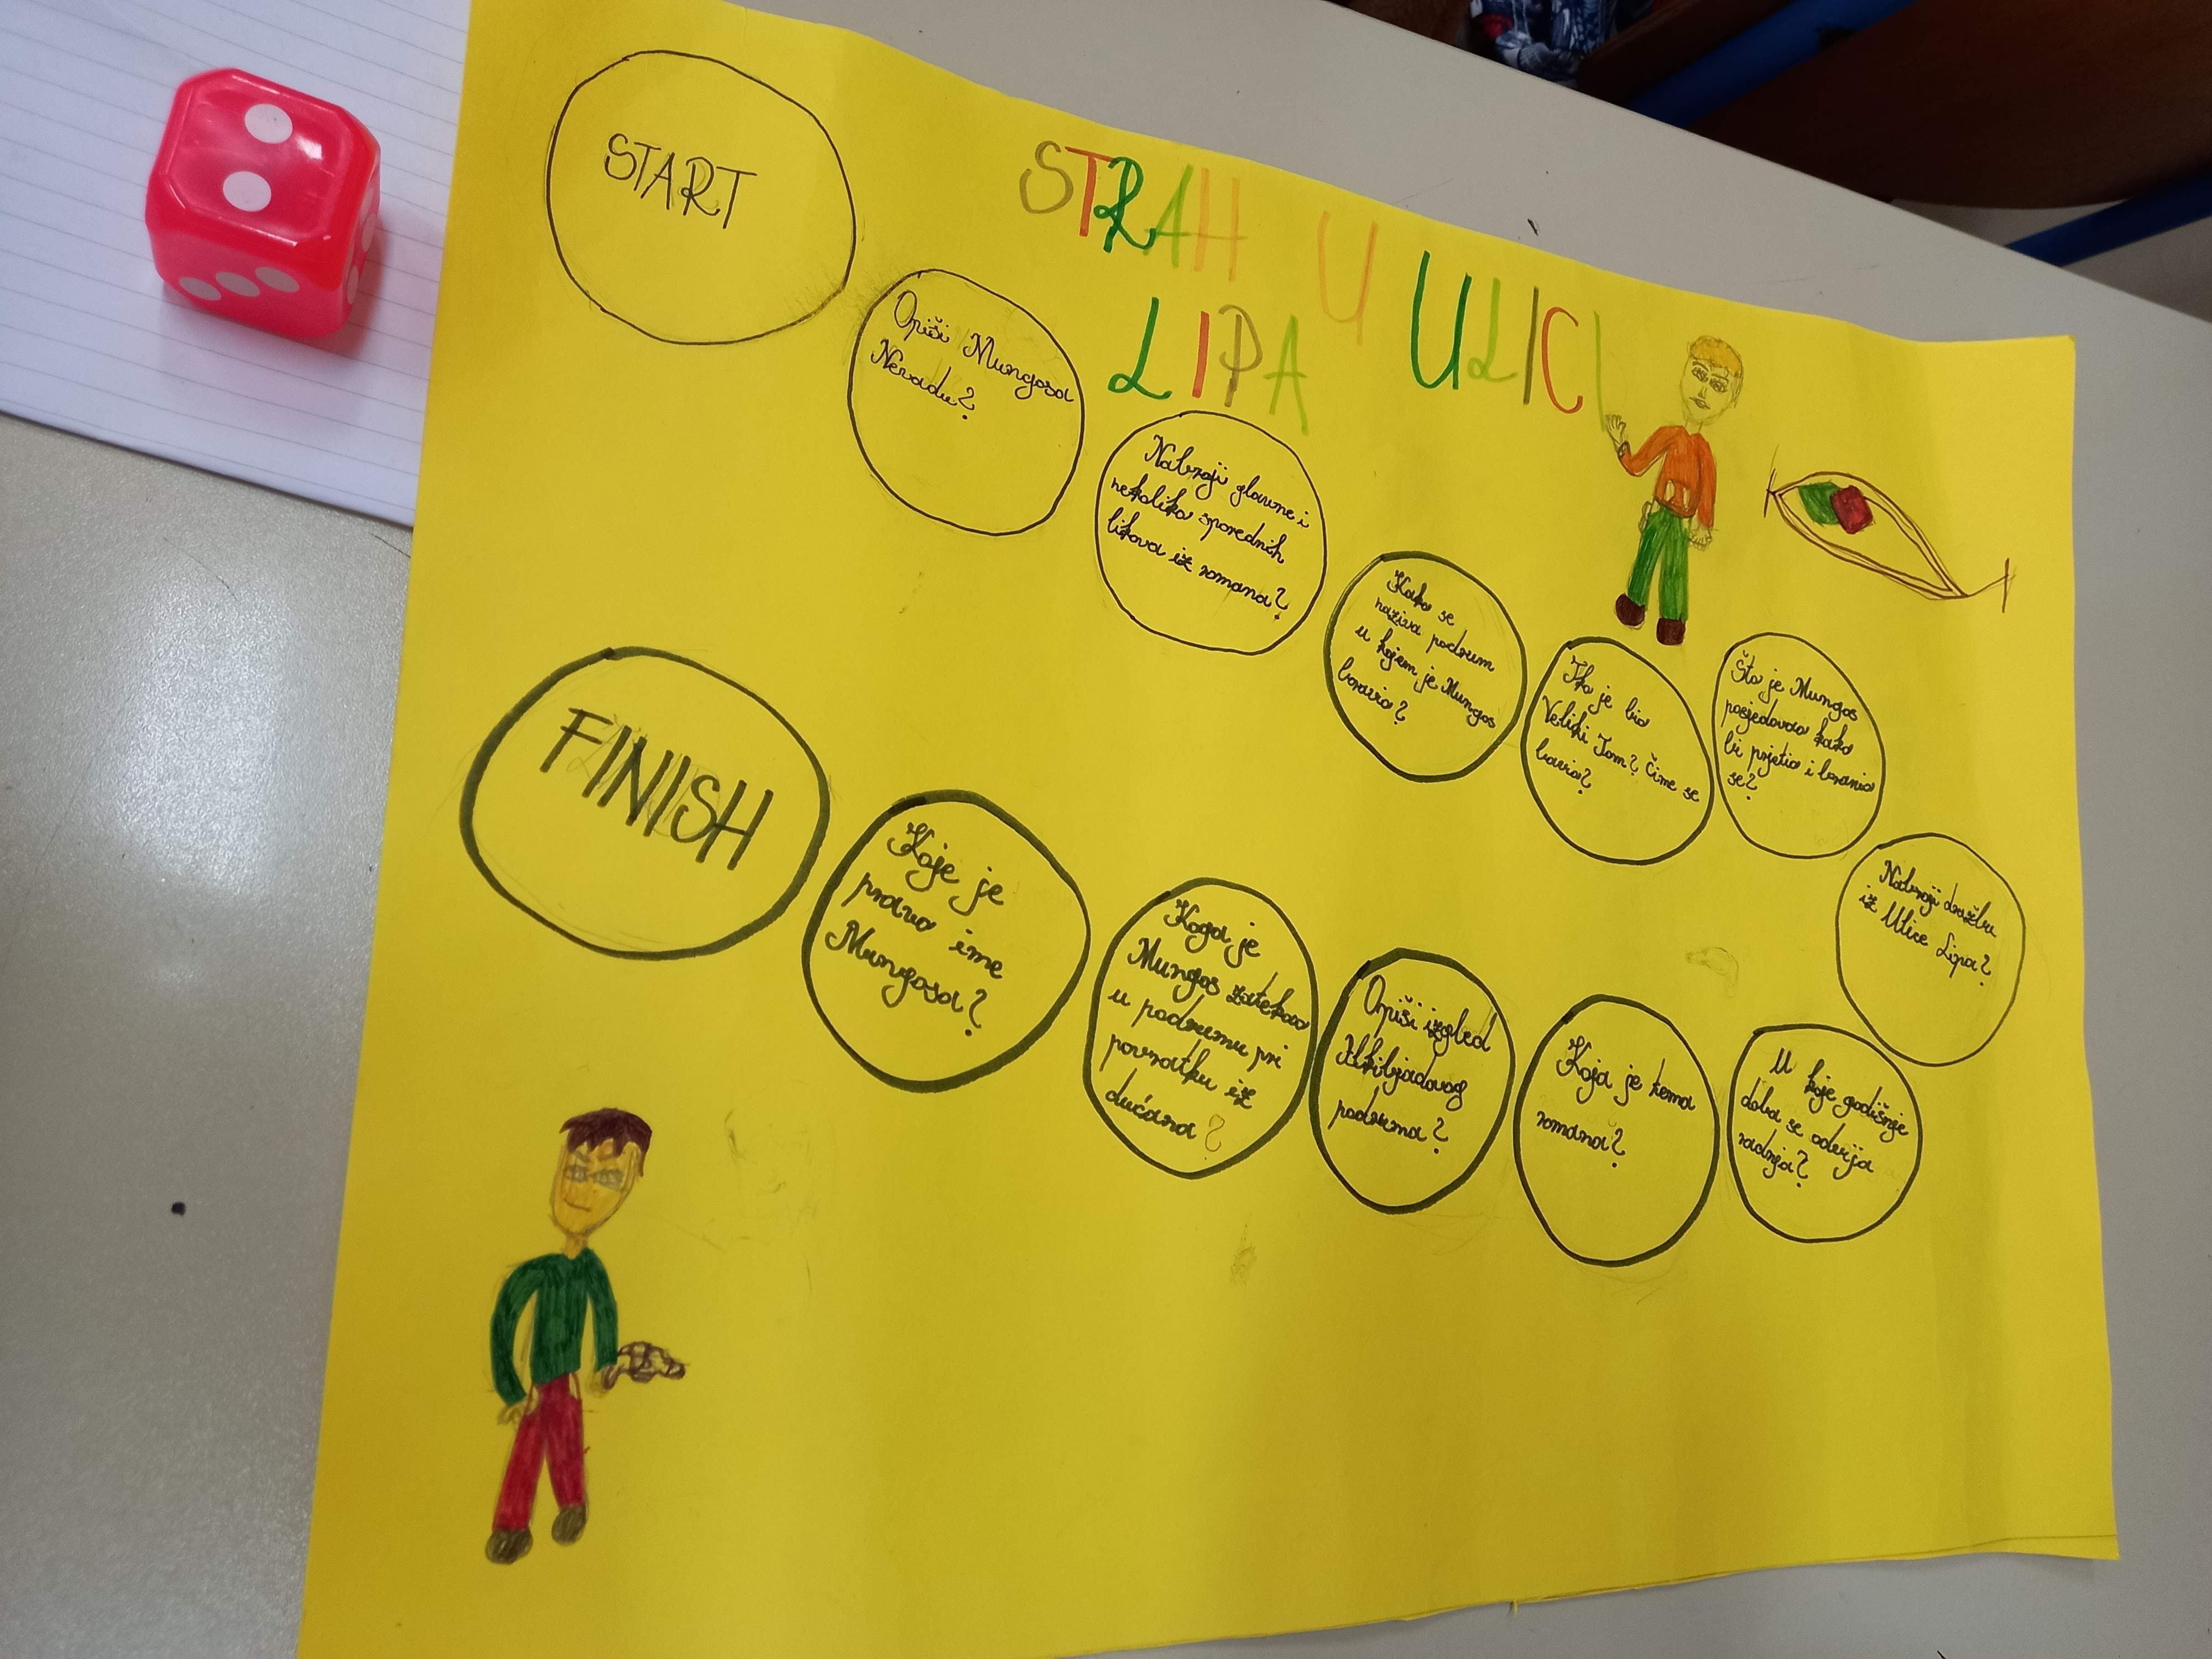 START
STRAH U ULICI
LIPA
Opiši Mungosa
Nevadu?
Nabroji glavne i
nekoliko sporednih
likova iz romana?
Kako se
naziva podrum
u kojem je Mungos
boravio?
Tko je bio
Veliki Tom? Čime se
bavio?
Što je Mungos
posjedovao kako
bi prijetio i branio
se?
Nabroji družbu
iz Ulice Lipa?
U koje godišnje
doba se odvija
radnja?
Koja je tema
romana?
Opiši izgled
Alkibijadovog
podruma?
Koga je
Mungos zatekao
u podrumu pri
povratku iz
dućana?
Koje je
pravo ime
Mungosa?
FINISH